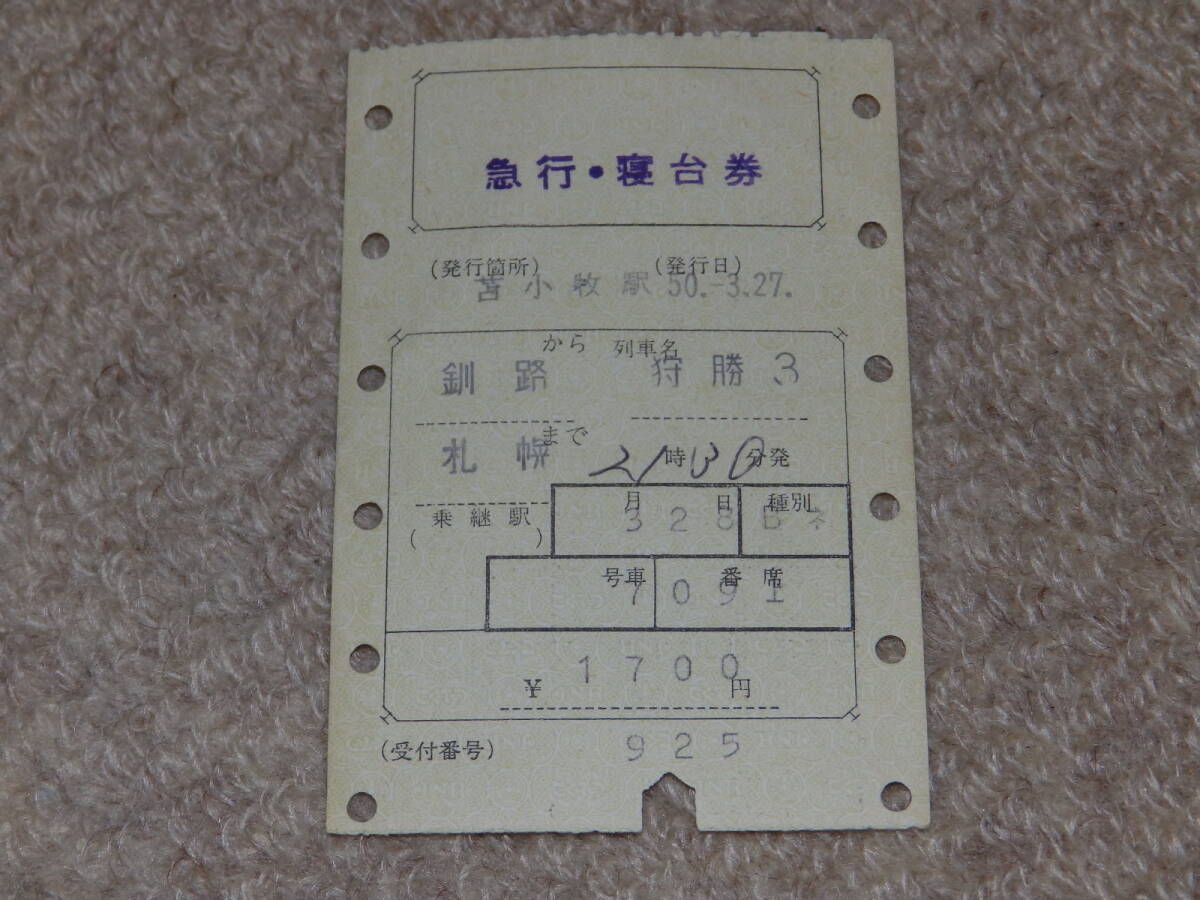 急行・寝台券
(発行箇所) (発行日)
苫小牧駅 50.-3.27.
から 列車名
釧路 狩勝3
まで
札幌 21時30分発
月 日 種別
(乗継駅) 3 28 B*
号車 番席
7 091
1700
¥ 円
(受付番号) 925